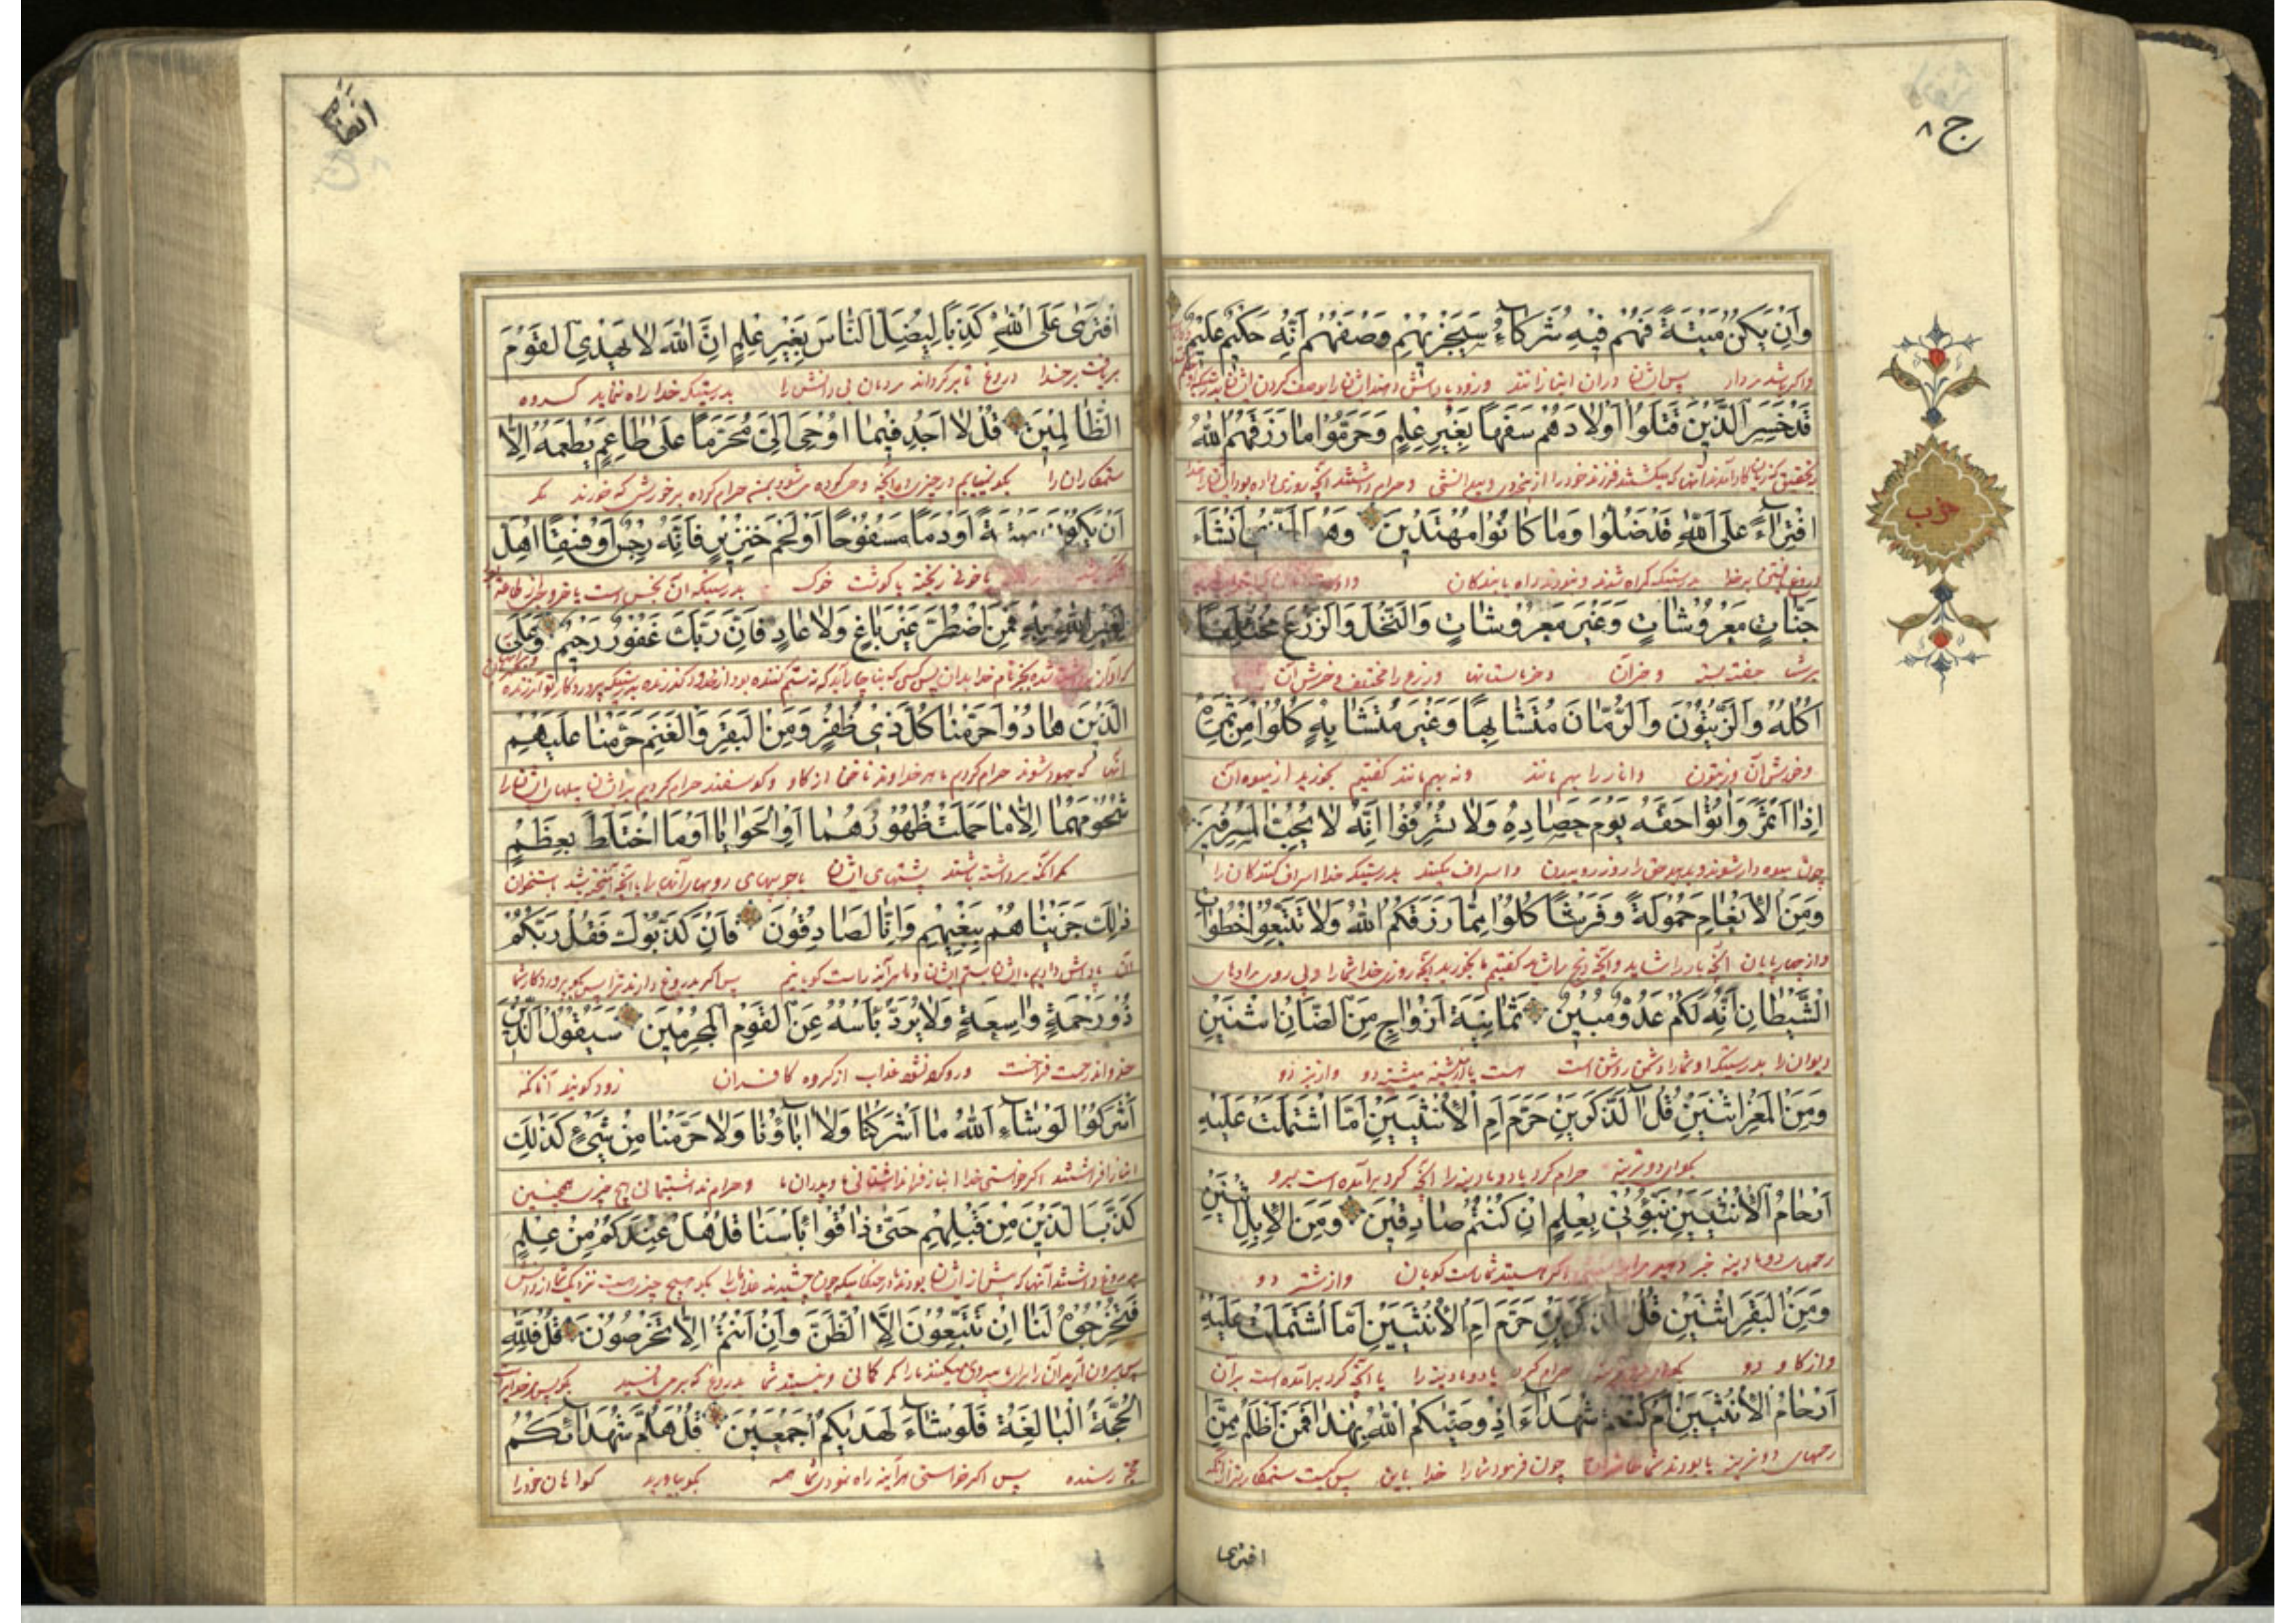 ج ٨
وَاِنْ يَكُنْ مَيْتَةً فَهُمْ فِيهِ شُرَكَآءُ سَيَجْزِيهِمْ وَصْفَهُمْ اِنَّهُ حَكِيمٌ عَلِيمٌ
واكر باشد مردار پس ايشان دران انبازانند وزود پاداش دهد ايشانرا وصف كردن ايشان
قَدْ خَسِرَ الَّذِينَ قَتَلُوا اَوْلادَهُمْ سَفَهًا بِغَيْرِ عِلْمٍ وَحَرَّمُوا مَا رَزَقَهُمُ اللّٰهُ
بتحقيق كه زيان كار آمدند آنها كه بكشتند فرزند خود را از بيخردى وبيدانشى وحرام داشتند آنچه روزى داده بود ايشانرا خدا
افْتِرَآءً عَلَى اللّٰهِ قَدْ ضَلُّوا وَمَا كَانُوا مُهْتَدِينَ وَهُوَ الَّذِى اَنْشَاَ
دروغ گفتن برخدا بدرستيكه كمراه شدند ونبودند راه يابندكان
جَنَّاتٍ مَعْرُوشَاتٍ وَغَيْرَ مَعْرُوشَاتٍ وَالنَّخْلَ وَالزَّرْعَ مُخْتَلِفًا
وخرماستانها وزرع را مختلف
اُكُلُهُ وَالزَّيْتُونَ وَالرُّمَّانَ مُتَشَابِهًا وَغَيْرَ مُتَشَابِهٍ كُلُوا مِنْ ثَمَرِهِ
وخورش آن وزيتون وانار را بهم مانند ونه بهم مانند كفتيم بخوريد از ميوه آن
اِذَا اَثْمَرَ وَاٰتُوا حَقَّهُ يَوْمَ حَصَادِهِ وَلا تُسْرِفُوا اِنَّهُ لا يُحِبُّ الْمُسْرِفِينَ
چون ميوه دار شوند وبدهيد حق را روز درويدن واسراف مكنيد بدرستيكه خدا اسراف كنندكان را
وَمِنَ الْاَنْعَامِ حَمُولَةً وَفَرْشًا كُلُوا مِمَّا رَزَقَكُمُ اللّٰهُ وَلا تَتَّبِعُوا خُطُوَاتِ
واز چهارپايان آنچه بار را شايد وآنچه ذبح را شايد كفتيم بخوريد آنچه روزى خدا شما را وپى روى مراد هاى
الشَّيْطَانِ اِنَّهُ لَكُمْ عَدُوٌّ مُبِينٌ ثَمَانِيَةَ اَزْوَاجٍ مِنَ الضَّاْنِ اثْنَيْنِ
ديوان را بدرستيكه او شما را دشمن روشن است دو واز بز دو
وَمِنَ الْمَعْزِ اثْنَيْنِ قُلْ اٰلذَّكَرَيْنِ حَرَّمَ اَمِ الْاُنْثَيَيْنِ اَمَّا اشْتَمَلَتْ عَلَيْهِ
بكو اين دو نرينه حرام كرد يا دو مادينه را آنچه كرد برآمده است برو
اَرْحَامُ الْاُنْثَيَيْنِ نَبِّؤُنِى بِعِلْمٍ اِنْ كُنْتُمْ صَادِقِينَ وَمِنَ الْاِبِلِ اثْنَيْنِ
رحمهاى دو مادينه خبر دهيد مرا اكر هستيد شما راست كويان واز شتر دو
وَمِنَ الْبَقَرِ اثْنَيْنِ قُلْ اٰلذَّكَرَيْنِ حَرَّمَ اَمِ الْاُنْثَيَيْنِ اَمَّا اشْتَمَلَتْ عَلَيْهِ
واز كاو دو بكو حرام كرد يا دو مادينه را يا آنچه كرد برآمده است برآن
اَرْحَامُ الْاُنْثَيَيْنِ اَمْ كُنْتُمْ شُهَدَآءَ اِذْ وَصّٰيكُمُ اللّٰهُ بِهٰذَا فَمَنْ اَظْلَمُ مِمَّنِ
رحمهاى دو يا بودند شما حاضران چون فرمود شما را خدا باين پس كيست ستمكارتر از آنكه
افترى
حزب
انعام
افْتَرٰى عَلَى اللّٰهِ كَذِبًا لِيُضِلَّ النَّاسَ بِغَيْرِ عِلْمٍ اِنَّ اللّٰهَ لا يَهْدِى الْقَوْمَ
بربافت برخدا دروغ تا بركرداند مردمان بى دانش را بدرستيكه خدا راه ننمايد كروه
الظَّالِمِينَ قُلْ لا اَجِدُ فِيمَا اُوْحِىَ اِلَىَّ مُحَرَّمًا عَلٰى طَاعِمٍ يَطْعَمُهُ اِلَّا
ستمكاران را بكو نمييابم در چيزى كه آنچه وحى كرده ميشود بمن حرام كرده برخورش كه خورند مكر
اَنْ يَكُونَ مَيْتَةً اَوْ دَمًا مَسْفُوحًا اَوْ لَحْمَ خِنْزِيرٍ فَاِنَّهُ رِجْسٌ اَوْ فِسْقًا اُهِلَّ
ياخونى ريخته يا كوشت خوك بدرستيكه آن نجس است يا خروج از طاعت
لِغَيْرِ اللّٰهِ بِهِ فَمَنِ اضْطُرَّ غَيْرَ بَاغٍ وَلا عَادٍ فَاِنَّ رَبَّكَ غَفُورٌ رَحِيمٌ وَعَلَى
بجز نام خدا بدان پس كسى كه بيچاره آيد كه نه ستم كننده بود بدرستيكه پروردكار تو آمرزنده
الَّذِينَ هَادُوا حَرَّمْنَا كُلَّ ذِى ظُفُرٍ وَمِنَ الْبَقَرِ وَالْغَنَمِ حَرَّمْنَا عَلَيْهِمْ
آنها كه جهود شوند حرام كرديم هر خداوند ناخن از كاو وكوسفند حرام كرديم برايشان پيههاى ايشانرا
شُحُومَهُمَا اِلَّا مَا حَمَلَتْ ظُهُورُهُمَا اَوِ الْحَوَايَا اَوْ مَا اخْتَلَطَ بِعَظْمٍ
مكر آنكه برداشته باشند پشتهاى ايشان يا چربيهاى يا آنچه آميخته شد باستخوان
ذٰلِكَ جَزَيْنَاهُمْ بِبَغْيِهِمْ وَاِنَّا لَصَادِقُونَ فَاِنْ كَذَّبُوكَ فَقُلْ رَبُّكُمْ
آن پاداش داديم ايشانرا بستم ايشان وما هرآينه راست كويانيم پس اكر بدروغ دارند ترا پس بكو پروردكار شما
ذُو رَحْمَةٍ وَاسِعَةٍ وَلا يُرَدُّ بَاْسُهُ عَنِ الْقَوْمِ الْمُجْرِمِينَ سَيَقُولُ الَّذِينَ
خداوند رحمت فراخست ورد كرده نشود عذاب از كروه كافران زود كويند آنانكه
اَشْرَكُوا لَوْ شَآءَ اللّٰهُ مَا اَشْرَكْنَا وَلا اٰبَآؤُنَا وَلا حَرَّمْنَا مِنْ شَىْءٍ كَذٰلِكَ
انباز فراداشتند اكر خواستى خدا انباز فرا نداشتمانى ما وپدران ما وحرام نداشتمانى هيچ چيز همچنين
كَذَّبَ الَّذِينَ مِنْ قَبْلِهِمْ حَتّٰى ذَاقُوا بَاْسَنَا قُلْ هَلْ عِنْدَكُمْ مِنْ عِلْمٍ
بدروغ داشتند آنها كه پيش از ايشان بودند چون چشيدند عذاب ما بكو هيچ چيز هست نزديك شما از دانش
فَتُخْرِجُوهُ لَنَا اِنْ تَتَّبِعُونَ اِلَّا الظَّنَّ وَاِنْ اَنْتُمْ اِلَّا تَخْرُصُونَ قُلْ فَلِلّٰهِ
پس بيرون آريد آن را براى ما پيروى ميكنند مكر كمانى ونيستيد شما
الْحُجَّةُ الْبَالِغَةُ فَلَوْ شَآءَ لَهَدٰيكُمْ اَجْمَعِينَ قُلْ هَلُمَّ شُهَدَآئَكُمُ
رسنده پس اكر خواستى هرآينه راه نمودى شما همه بكو بياوريد كواهان خود را